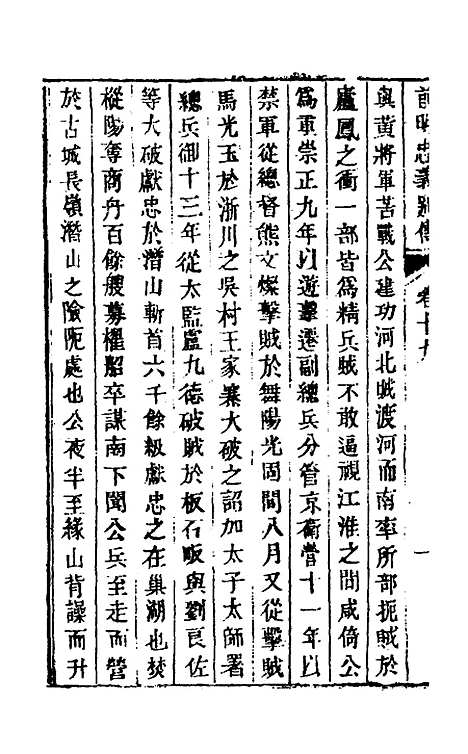 前明忠義別傳 卷十九 一
與黃將軍苦戰公建功河北賊渡河而南率所部扼賊於
廬鳳之衝一部皆爲精兵賊不敢逼視江淮之間咸倚公
爲重崇正九年以遊擊遷副總兵分管京衛營十一年以
禁軍從總督熊文燦擊賊於舞陽光固間八月又從擊賊
馬光玉於浙川之吳村王家寨大破之詔加太子太師署
總兵御十三年從太監盧九德破賊於板石畈與劉良佐
等大破獻忠於潛山斬首六千餘級獻忠之在巢湖也焚
樅陽奪商舟百餘艘募櫂船卒謀南下聞公兵至走而營
於古城長嶺潛山之險阨處也公夜半至緣山背譟而升